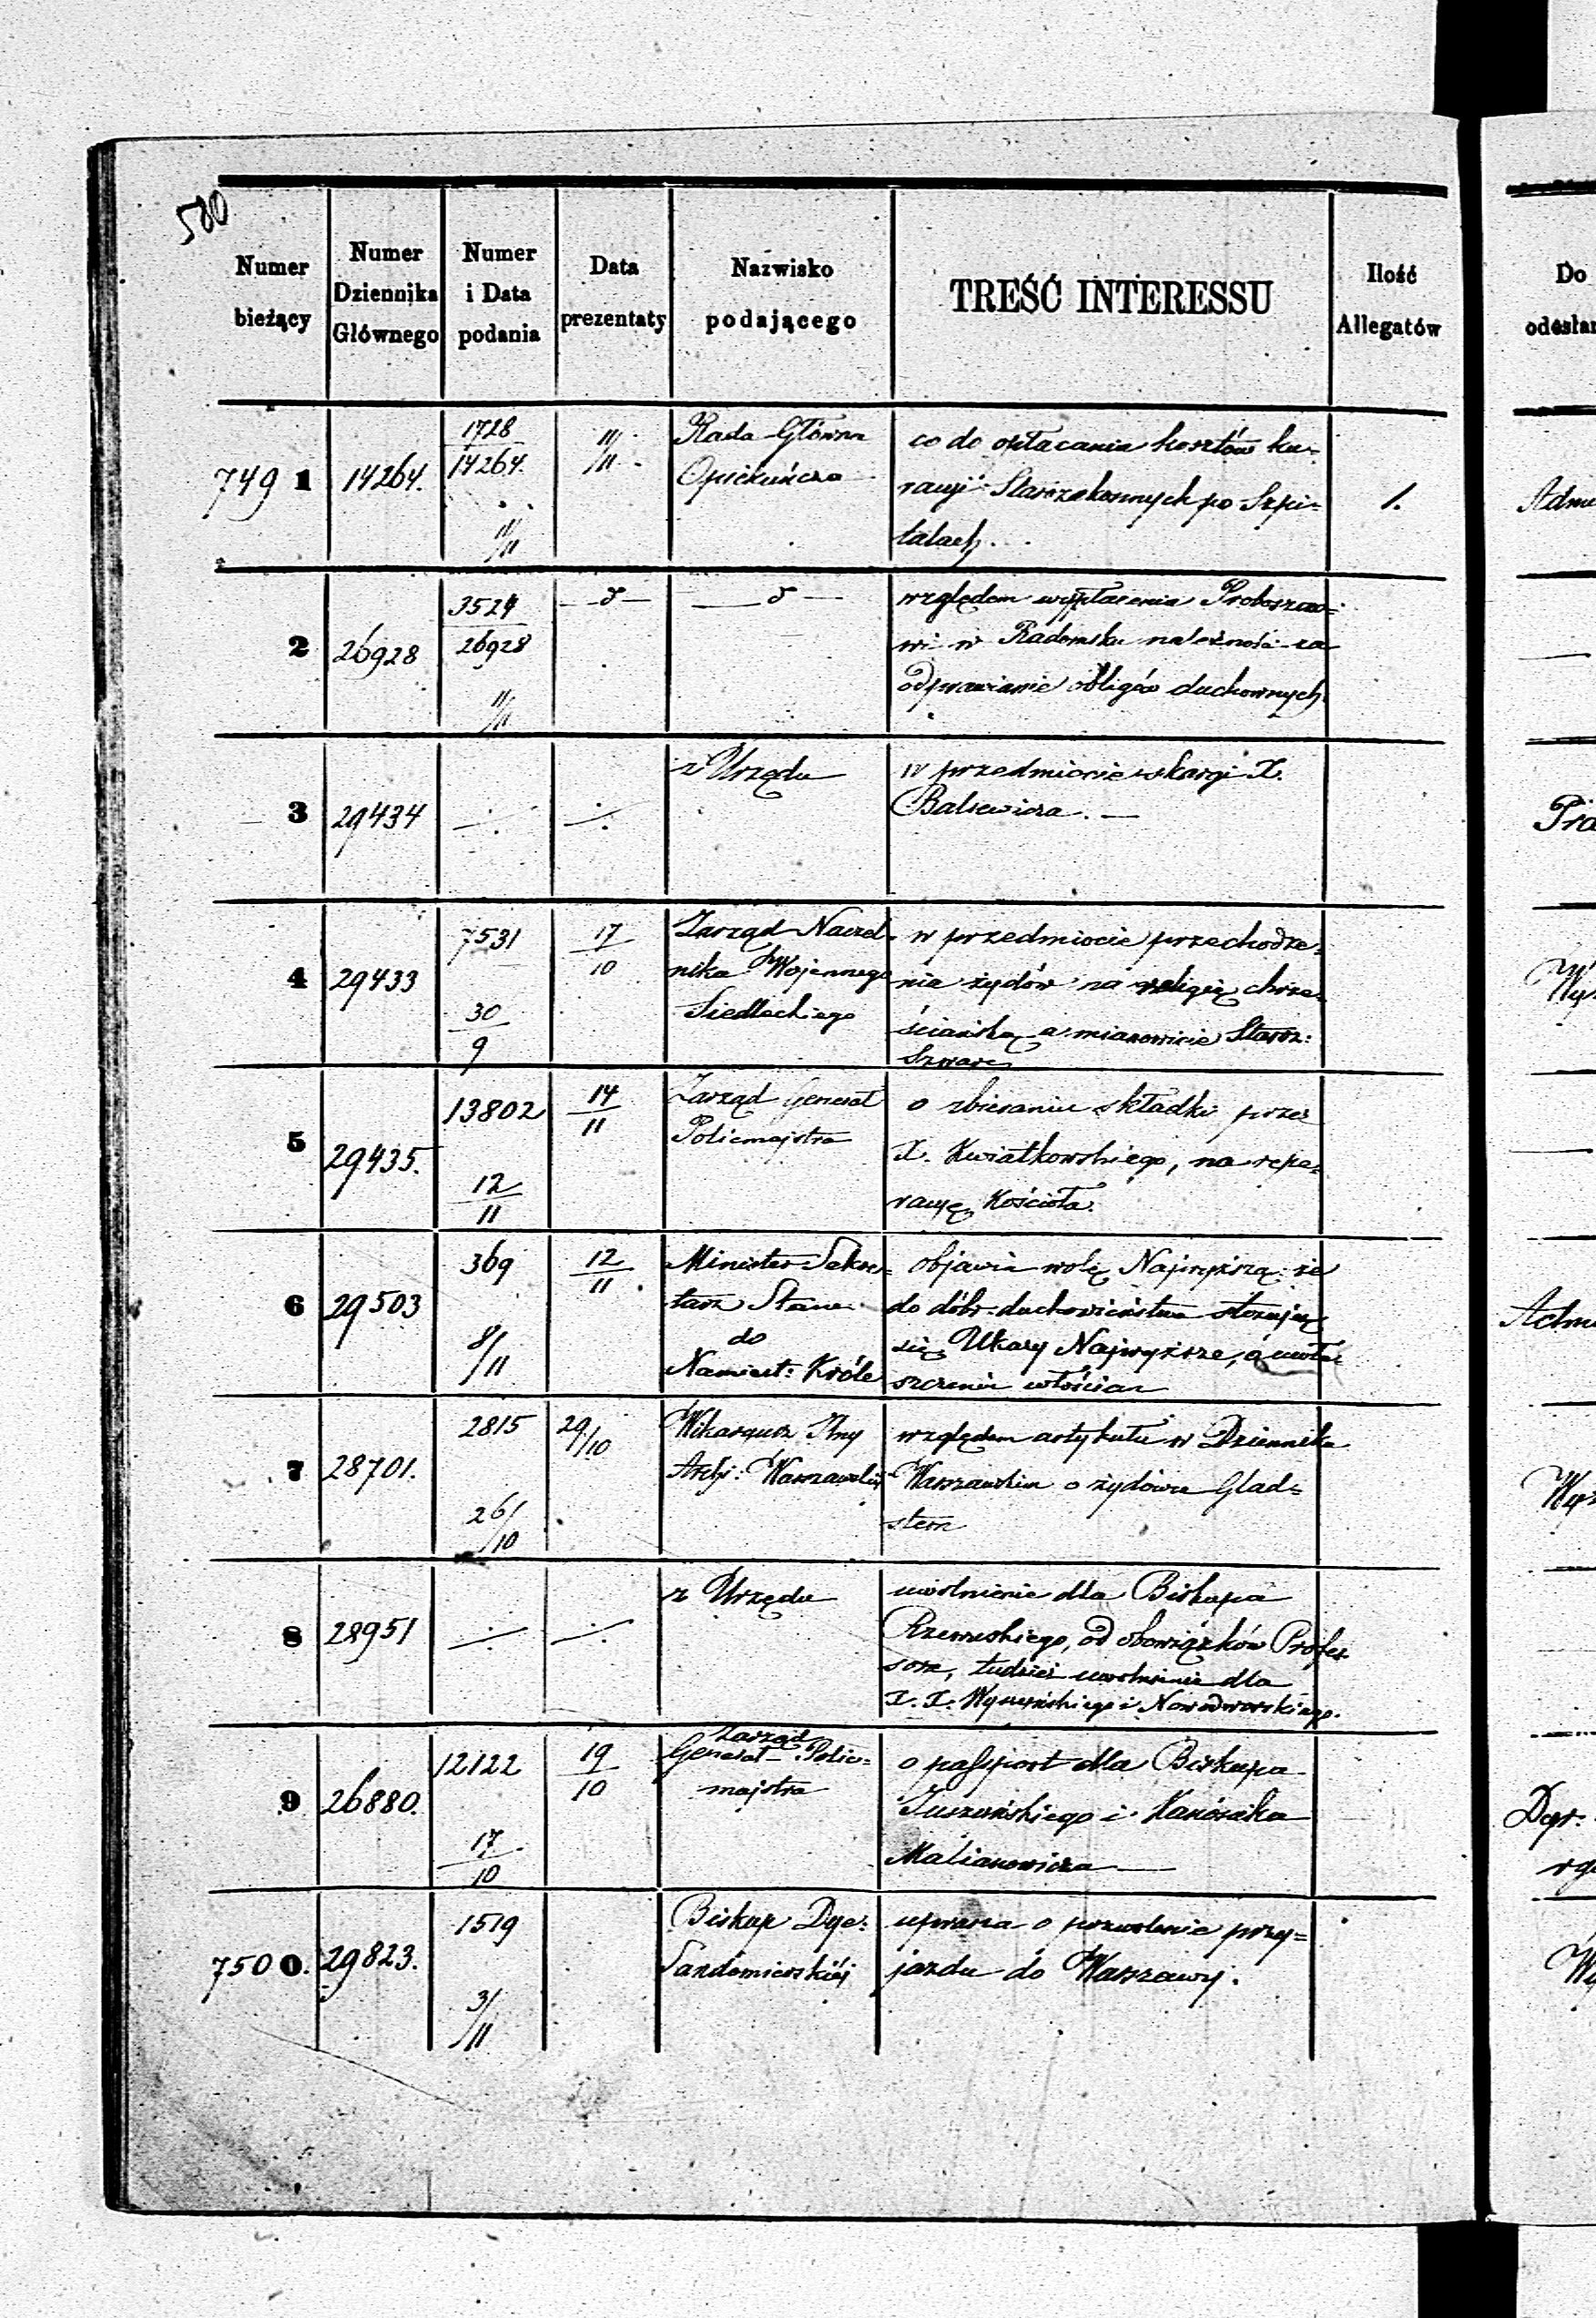 580
Numer bieżący
Numer Dziennika Głównego
Numer i Data podania
Data prezentaty
Nazwisko podającego
TREŚĆ INTERESSU
Ilość Allegatów
Do
749 1
14264.
1728
14264.
11/11
11/11
Rada Główna
Opiekuńcza
co do opłacania kosztów ku=
racyi Starozakonnych po Szpi=
talach.
1.
2
26928
3524
26928
11/11
— d —
— d —
względem wypłacenia Proboszczo=
wi w Radomsku należności za
odprawianie obligów duchownych
3
29434
z Urzędu
w przedmiocie skargi X.
Balsewicza. —
4
29433
7531
30/9
17/10
Zarząd Naczel=
nika Wojennego
Siedleckiego
w przedmiocie przechodze=
nia żydów na religię chrze=
ściańską a mianowicie Staroz:
Szwarc
5
29435.
13802
12/11
14/11
Zarząd Generał
Policmajstra
o zbieraniu składki przez
X. Kwiatkowskiego, na repe=
racyę Kościoła.
6
29503
369
8/11
12/11.
Minister Sekre=
tarz Stanu
do
Namiest: Króle
objawia wolę Najwyższą że
do dóbr duchowieństwa stosują
się Ukazy Najwyższe, o uwła=
szczeniu włościan
7
28701.
2815
26/10
29/10
Wikaryusz Jlny
Archi: Warszawski
względem artykułu w Dzienniku
Warszawskim o żydówce Glad=
stern
8
28951
z Urzędu
uwolnienie dla Biskupa
Rzewuskiego, od obowiązków Profes=
sora, tudzież uwolnienie dla
X. X. i Nowodworskiego.
9
26880.
12122
17/10
19/10
Zarząd
Generał-Polic=
majstra
o passport dla Biskupa
Juszyńskiego i Kanonika
Malianowicza —
7500.
29823.
1519
3/11
Biskup Dye:
Sandomierskiéj
uprasza o pozwolenie przy=
jazdu do Warszawy.